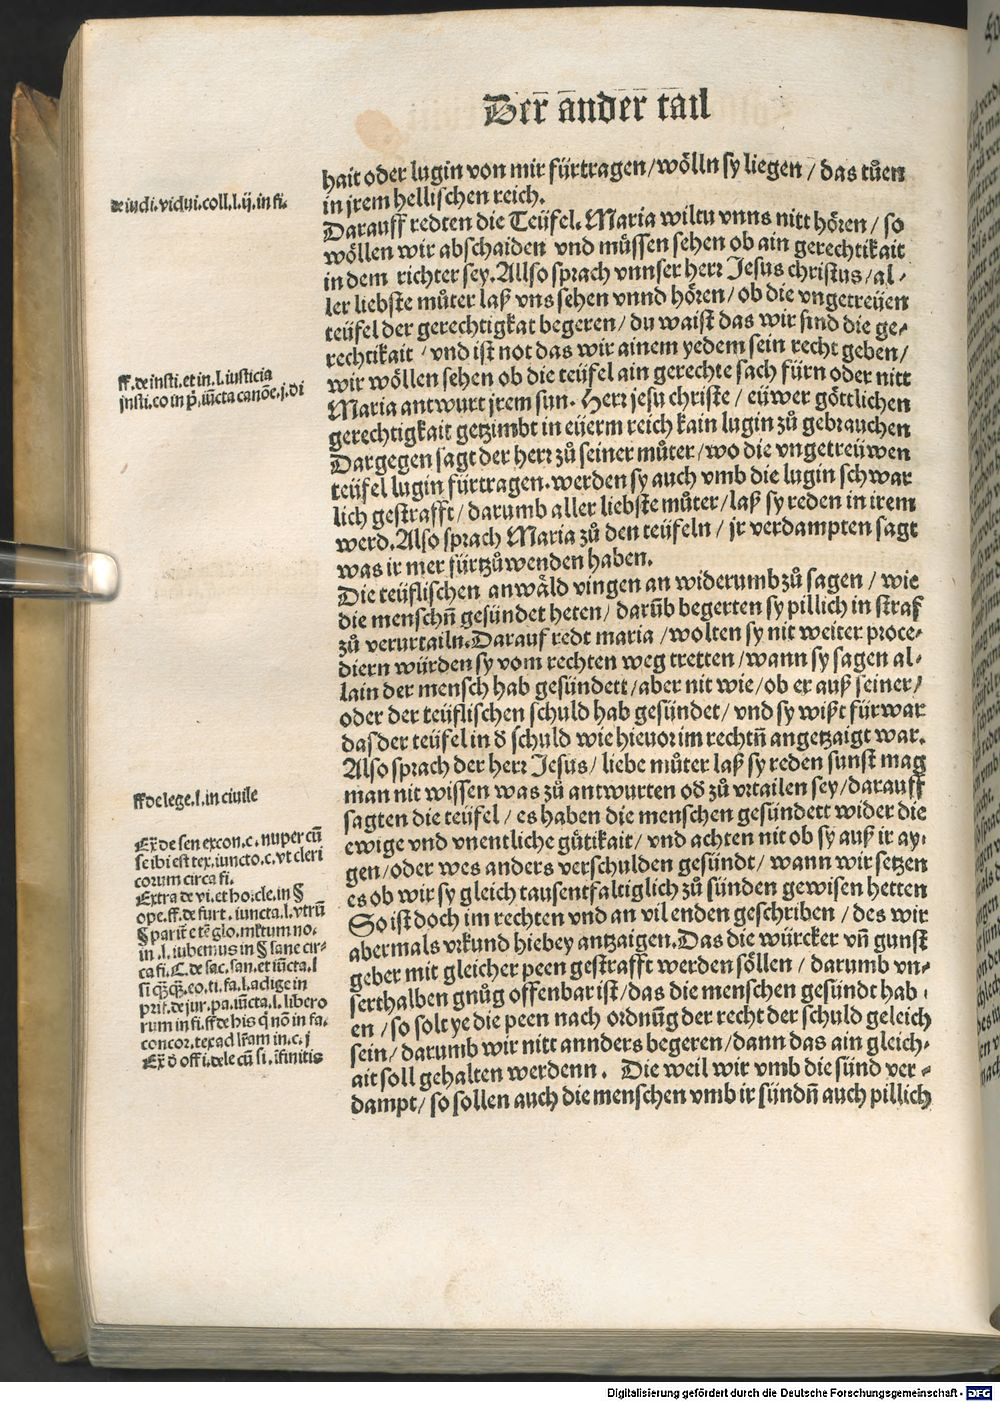 Der ander tail
hait oder lugin von mir fürtragen/wölln sy liegen / das tůen
in jrem hellischen reich.
Darauff redten die Teüfel. Maria wiltu vnns nitt hören / so
wöllen wir abschaiden vnd müssen sehen ob ain gerechtikait
in dem richter sey. Allso sprach vnnser herr Jesus christus/al-
ler liebste můter laß vns sehen vnnd hören/ ob die vngetreüen
teüfel der gerechtigkat begeren/ du waist das wir sind die ge-
rechtikait / vnd ist not das wir ainem yedem sein recht geben/
wir wöllen sehen ob die teüfel ain gerechte sach fürn oder nitt
Maria antwurt jrem sun. Herr jesu christe / eüwer göttlichen
gerechtigkait getzimbt in eüerm reich kain lugin zů gebrauchen
Dargegen sagt der herr zů seiner můter/wo die vngetreüwen
teüfel lugin fürtragen.werden sy auch vmb die lugin schwar
lich gestrafft/ darumb aller liebste můter/laß sy reden in irem
werd. Also sprach Maria zů den teüfeln / jr verdampten sagt
was ir mer fürtzůwenden haben.
Die teüflischen anwäld vingen an widerumbzů sagen / wie
die menschn̄ gesündet heten/ darūb begerten sy pillich in straf
zů verurtailn. Darauf redt maria /wolten sy nit weiter proce-
diern würden sy vom rechten weg tretten/wann sy sagen al-
lain der mensch hab gesündett/aber nit wie/ob er auß seiner/
oder der teüflischen schuld hab gesündet/ vnd sy wißt fürwar
das der teüfel in d̄ schuld wie hieuor im rechtn̄ angetzaigt war.
Also sprach der herr Jesus/ liebe můter laß sy reden sunst mag
man nit wissen was zů antwurten od̄ zů vrtailen sey/darauff
sagten die teüfel/ es haben die menschen gesündett wider die
ewige vnd vnentliche gütikait/ vnd achten nit ob sy auß ir ay-
gen/oder wes anders verschulden gesünt/ wann wir setzen
es ob wir sy gleich tausentfaltiglich zů sünden gewisen hetten
So ist doch im rechten vnd an vil enden geschriben / des wir
abermals vrkund hiebey antzaigen. Das die würcker vn̄ gunst
geber mit gleicher peen gestrafft werden söllen / darumb vn-
serthalben gnůg offenbar ist/das die menschen gesünt hab
en / so solt ye die peen nach ordnūg der recht der schuld geleich
sein/ darumb wir nitt annders begeren/dann das ain gleich-
ait soll gehalten werdenn. Die weil wir vmb die sünd ver-
dampt/ so sollen auch die menschen vmb ir sündn̄ auch pillich
de iudi. vidui. coll. l. ij. in fi.
ff. de insti. et in. l. iusticia
insti. eo in p̄. iūcta canōe. j. di
ff de lege. l. in ciuile
Ex̄ de sen excon. c. nuper cū
se ibi est tex. iuncto. c. vt cleri
corum circa fi.
Extra de vi. et ho. cle. in §
ope. ff. de furt. iuncta. l. vtrū
in .l. iubemus in § sane cir-
ca fi. C. de sac. san. et iūcta. l
si q̄q̄. eo. ti. fa. l. adige in
prīc. de jur. pa. iūcta. l. libero
rum in fi. ff de his q̄ nō in fa.
concor. tex ad lr̄am in. c. j
Ex̄ d̄ offi. dele cū si. īfinitis
Digitalisierung gefördert durch die Deutsche Forschungsgemeinschaft - DFG